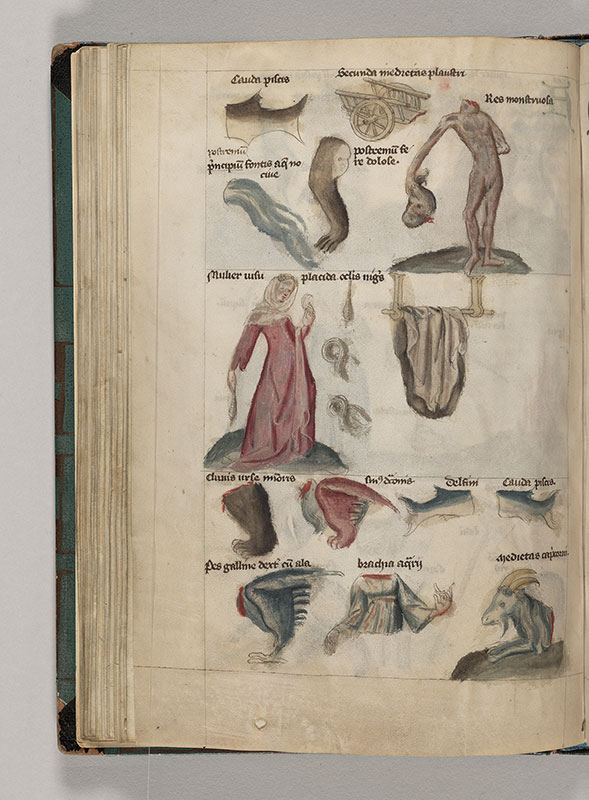 Cauda piscis
Secunda medietas plaustri
Res monstruosa
postremū
p̄ncipiū fontis aq̄ no
ciue
postremū fe
re dolose.
Mulier uisu placida oclīs nigˢ
Clunis urse mīoris
delfini
Cauda piscis.
Pes galline dextˀ cū ala
brachia aq̄rij
Medietas cap̄corni